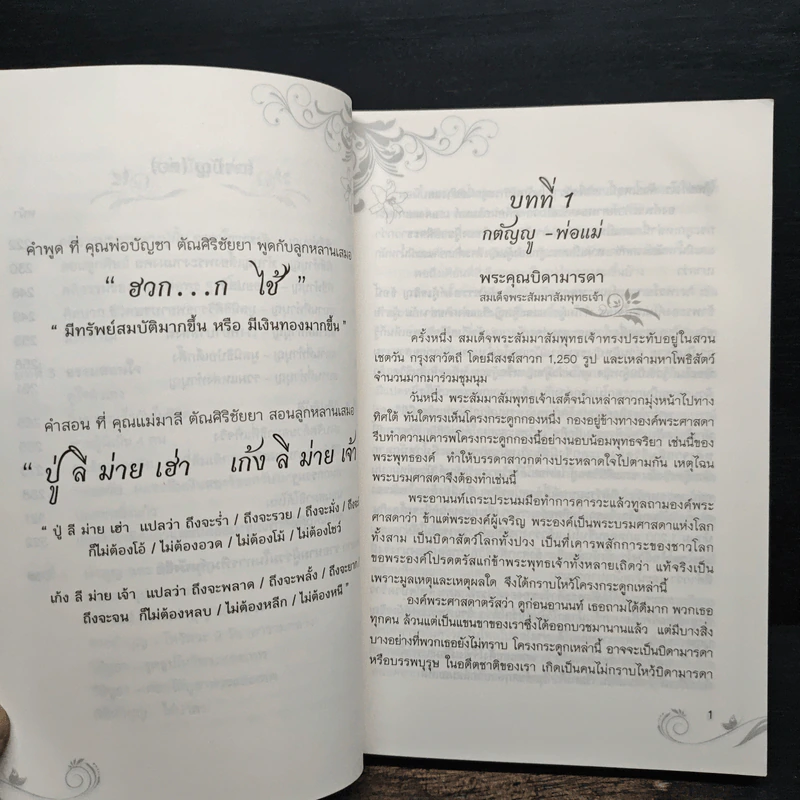 คำพูด ที่ คุณพ่อบัญชา ตัณศิริชัยยา พูดกับลูกหลานเสมอ
“ ฮวก...ก ไช้ ”
“ มีทรัพย์สมบัติมากขึ้น หรือ มีเงินทองมากขึ้น ”
คำสอน ที่ คุณแม่มาลี ตัณศิริชัยยา สอนลูกหลานเสมอ
“ ปู่ ลี ม่าย เฮ่า เก้ง ลี ม่าย เจ้า
“ ปู่ ลี ม่าย เฮ่า แปลว่า ถึงจะร่ำ / ถึงจะรวย / ถึงจะมั่ง / ถึงจะ
ก็ไม่ต้องโอ้ / ไม่ต้องอวด / ไม่ต้องโม้ / ไม่ต้องโชว์
เก้ง ลี ม่าย เจ้า แปลว่า ถึงจะพลาด / ถึงจะพลั้ง / ถึงจะยาก
ถึงจะจน ก็ไม่ต้องหลบ / ไม่ต้องหลีก / ไม่ต้องหนี ”
บทที่ 1
กตัญญู -พ่อแม่
พระคุณบิดามารดา
สมเด็จพระสัมมาสัมพุทธเจ้า
ครั้งหนึ่ง สมเด็จพระสัมมาสัมพุทธเจ้าทรงประทับอยู่ในสวน
เชตวัน กรุงสาวัตถี โดยมีสงฆ์สาวก 1,250 รูป และเหล่ามหาโพธิสัตว์
จำนวนมากมาร่วมชุมนุม
วันหนึ่ง พระสัมมาสัมพุทธเจ้าเสด็จนำเหล่าสาวกมุ่งหน้าไปทาง
ทิศใต้ ทันใดทรงเห็นโครงกระดูกกองหนึ่ง กองอยู่ข้างทางองค์พระศาสดา
รีบทำความเคารพโครงกระดูกกองนี้อย่างนอบน้อมพุทธจริยา เช่นนี้ของ
พระพุทธองค์ ทำให้บรรดาสาวกต่างประหลาดใจไปตามกัน เหตุไฉน
พระบรมศาสดาจึงต้องทำเช่นนี้
พระอานนท์เถระประนมมือทำการคารวะแล้วทูลถามองค์พระ
ศาสดาว่า ข้าแต่พระองค์ผู้เจริญ พระองค์เป็นพระบรมศาสดาแห่งโลก
ทั้งสาม เป็นบิดาสัตว์โลกทั้งปวง เป็นที่เคารพสักการะของชาวโลก
ขอพระองค์โปรดตรัสแก่ข้าพระพุทธเจ้าทั้งหลายเถิดว่า แท้จริงเป็น
เพราะมูลเหตุและเหตุผลใด จึงได้กราบไหว้โครงกระดูกเหล่านี้
องค์พระศาสดาตรัสว่า ดูก่อนอานนท์ เธอถามได้ดีมาก พวกเธอ
ทุกคน ล้วนแต่เป็นแขนขาของเราซึ่งได้ออกบวชมานานแล้ว แต่มีบางสิ่ง
บางอย่างที่พวกเธอยังไม่ทราบ โครงกระดูกเหล่านี้ อาจจะเป็นบิดามารดา
หรือบรรพบุรุษ ในอดีตชาติของเรา เกิดเป็นคนไม่กราบไหว้บิดามารดา
1